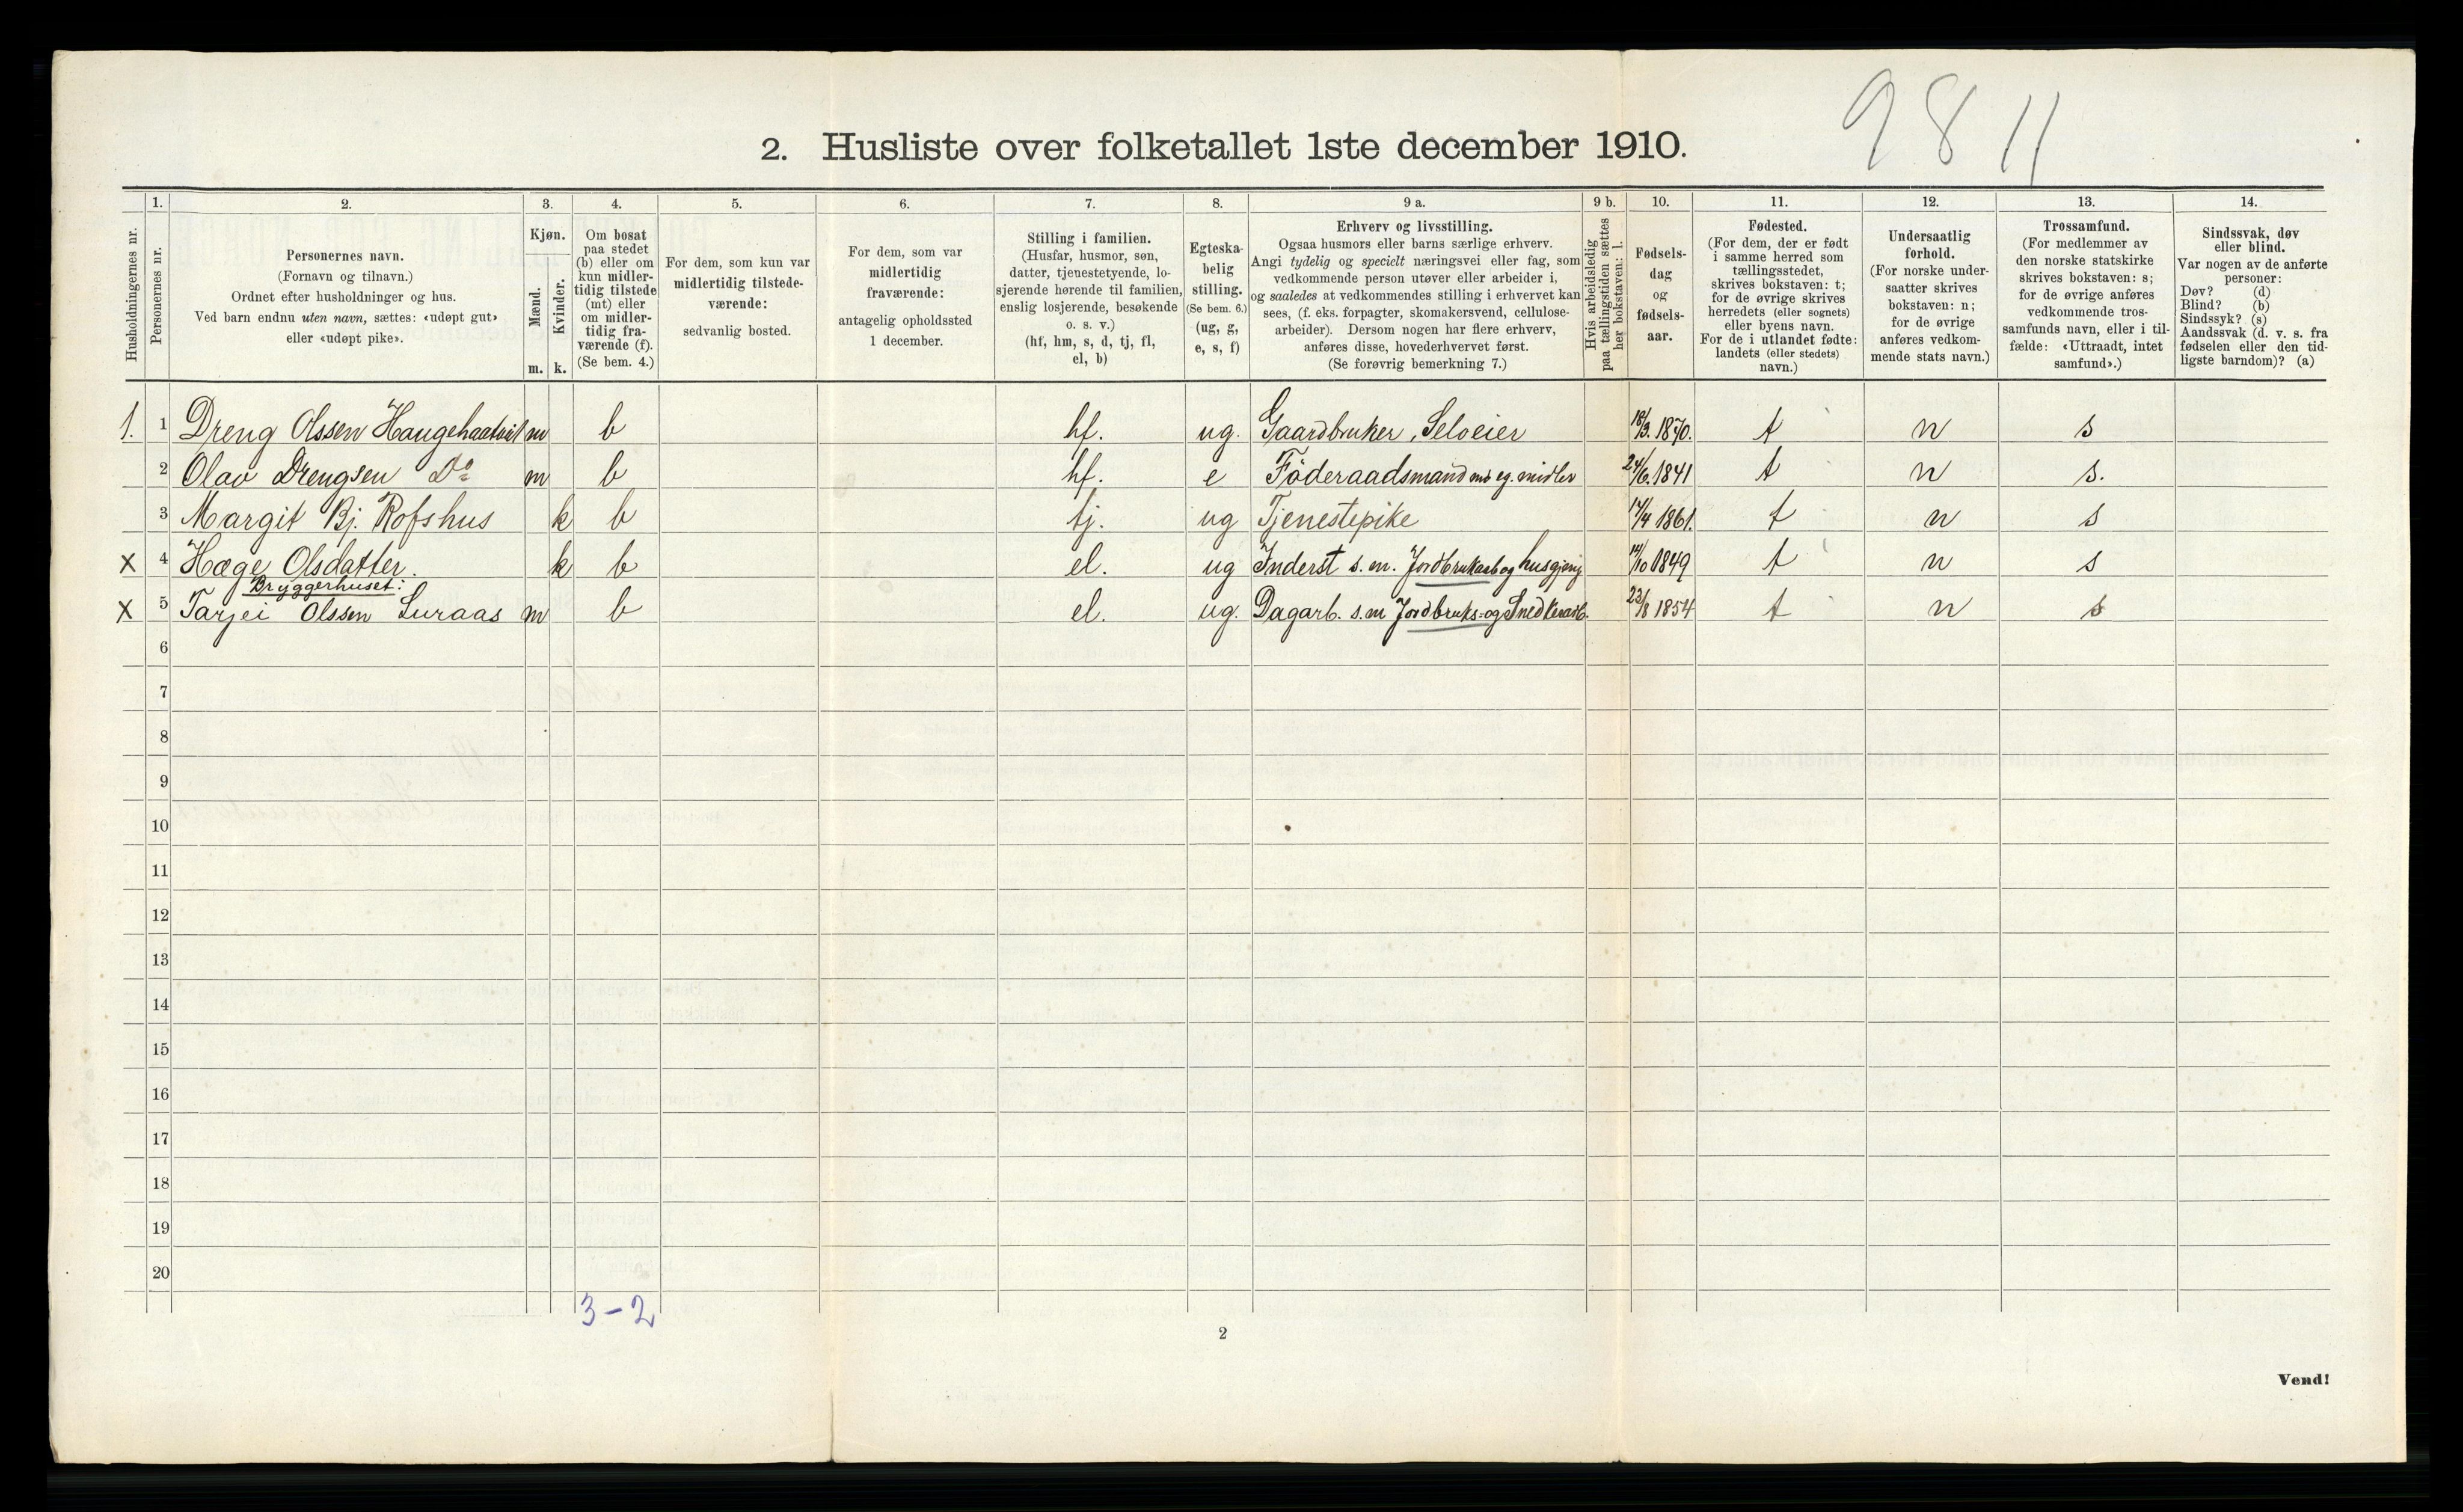 9811
2. Husliste over folketallet 1ste december 1910.
Husholdningernes nr.
1.
Personernes nr.
2.
Personernes navn.
(Fornavn og tilnavn.)
Ordnet efter husholdninger og hus.
Ved barn endnu uten navn, sættes: «udøpt gut»
eller «udøpt pike».
3.
Kjøn.
Mænd.
Kvinder.
m. k.
4.
Om bosat
paa stedet
(b) eller om
kun midler-
tidig tilstede
(mt) eller
om midler-
tidig fra-
værende (f).
(Se bem. 4.)
5.
For dem, som kun var
midlertidig tilstede-
værende:
sedvanlig bosted.
6.
For dem, som var
midlertidig
fraværende:
antagelig opholdssted
1 december.
7.
Stilling i familien.
(Husfar, husmor, søn,
datter, tjenestetyende, lo-
sjerende hørende til familien,
enslig losjerende, besøkende
o. s. v.)
(hf, hm, s, d, tj, fl,
el, b)
8.
Egteska-
belig
stilling.
(Se bem. 6.)
(ug, g,
e, s, f)
9 a.
Erhverv og livsstilling.
Ogsaa husmors eller barns særlige erhverv.
Angi tydelig og specielt næringsvei eller fag, som
vedkommende person utøver eller arbeider i,
og saaledes at vedkommendes stilling i erhvervet kan
sees, (f. eks. forpagter, skomakersvend, cellulose-
arbeider). Dersom nogen har flere erhverv,
anføres disse, hovederhvervet først.
(Se forøvrig bemerkning 7.)
9 b.
Hvis arbeidsledig
paa tællingstiden sættes
her bokstaven: l.
10.
Fødsels-
dag
og
fødsels-
aar.
11.
Fødested.
(For dem, der er født
i samme herred som
tællingsstedet,
skrives bokstaven: t;
for de øvrige skrives
herredets (eller sognets)
eller byens navn.
For de i utlandet fødte:
landets (eller stedets)
navn.)
12.
Undersaatlig
forhold.
(For norske under-
saatter skrives
bokstaven: n;
for de øvrige
anføres vedkom-
mende stats navn.)
13.
Trossamfund.
(For medlemmer av
den norske statskirke
skrives bokstaven: s;
for de øvrige anføres
vedkommende tros-
samfunds navn, eller i til-
fælde: «Uttraadt, intet
samfund».)
14.
Sindssvak, døv
eller blind.
Var nogen av de anførte
personer:
Døv? (d)
Blind? (b)
Sindssyk? (s)
Aandssvak (d. v. s. fra
fødselen eller den tid-
ligste barndom)? (a)
1. 1 Dreng Olssen Haugehaatveit m b hf. ug. Gaardbruker, Selveier 18/3. 1870. t n s
2 Olav Drengsen Do m b hf. e Föderaadsmand m/ eg. midler 24/6. 1841 t n s.
3 Margit Bj. Rofshus k b tj. ug Tjenestepike 17/4 1861. t n s
x 4 Hæge Olsdatter. k b el. ug Inderst s. m. Jordbruksarb og husgjernig 14/10 1849 t n s
Bryggerhuset:
x 5 Tarjei Olssen Luraas m b el. ug. Dagarb. s. m Jordbruks- og Snedkerarb. 23/8 1854 t n s
6
7
8
9
10
11
12
13
14
15
16
17
18
19
20
3-2
2
Vend!